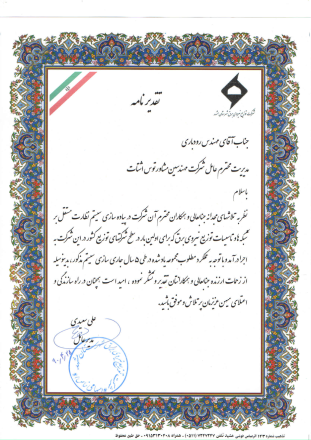 تقدیر نامه
جناب آقای مهندس رودباری
مدیریت محترم عامل شرکت مهندسین مشاور توس اثبات
با سلام
نظر به تلاشهای مجدانه جنابعالی و همکاران محترم آن شرکت در پیاده سازی سیستم نظارت مستقل بر
شبکه ها و تاسیسات توزیع نیروی برق که برای اولین بار در سطح شرکتهای توزیع کشور در این شرکت به
اجرا درآمد و با توجه به عملکرد مطلوب مجموعه یاد شده در طی ۵ سال جاری سازی سیستم مذکور، بدینوسیله
از زحمات ارزنده جنابعالی و همکارانتان تقدیر و تشکر نموده، امید است همچنان در راه سازندگی و
اعتلای میهن عزیزمان پر تلاش و موفق باشید.
علی سعیدی
مدیر عامل